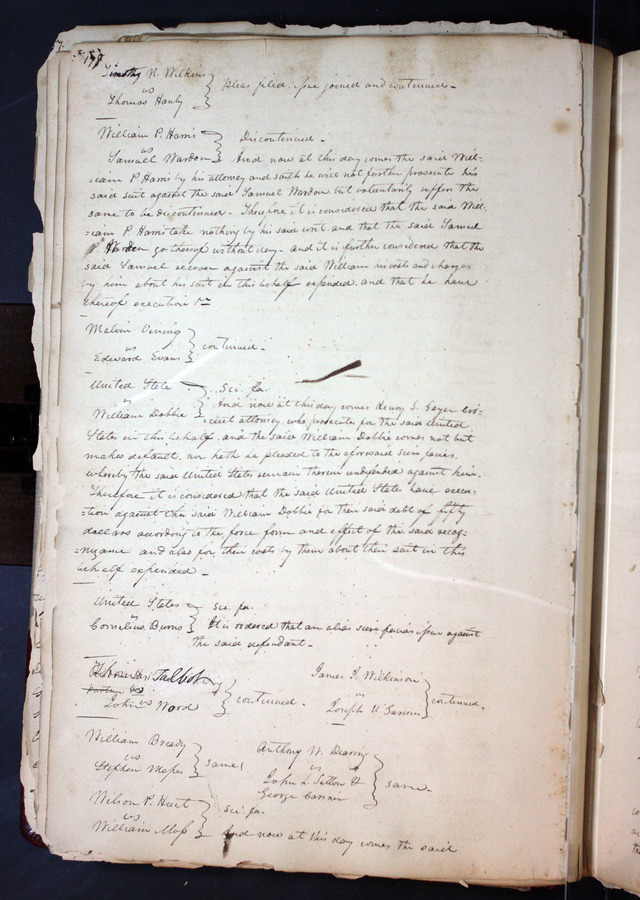 Timothy N. Wilkins
vs
Thomas Hanly
Pleas filed, issue joined and continued.
William P. Harris
vs
Samuel Wardon
Discontinued.
And now at this day comes the said Will-
-iam P. Harris by his attorney and saith he will not further prosecute his
said suit against the said Samuel Wardon but voluntarily suffers the
same to be discontinued. Therefore it is considered that the said Will-
=iam P Harris take nothing by his said writ and that the said Samuel
Warden go thereof without day. and it is further considered that the
said Samuel recover against the said William his costs and charges
by him about his suit in this behalf expended. and that he have
thereof execution &c
Melvin Vining
vs
Edward Evans
continued.
United State
vs
William Dobbie
Sci. fa.
And now at this day comes Henry S. Geyer Cir-
-cuit attorney, who prosecutes for the said United
States in this behalf. and the said William Dobbie comes not but
makes default, nor hath he pleaded to the aforesaid Scire facias.
whereby the said United States remain therein undefended against him.
Therefore it is considered that the said United States have execu-
=tion against the said William Dobbie for their said debt of fifty
dollars according to the force form and effect of the said recog-
=nizance and also for their costs by them about their suit in this
behalf expended.
United States
vs
Cornelius Burns
sci. fa.
It is ordered that an alias scire facias issue against
the said defendant.
Talbot
vs
John Ward
continued.
James I. Wilkinson
vs
Joseph V. Garnier
continued.
William Bready
vs
Stephen Moses
same
Anthony W. Dearing
vs
John L Sutton &
George Cassner
same.
Wilson P. Hunt
vs
William Moss
Sci. fa.
And now at this day comes the said